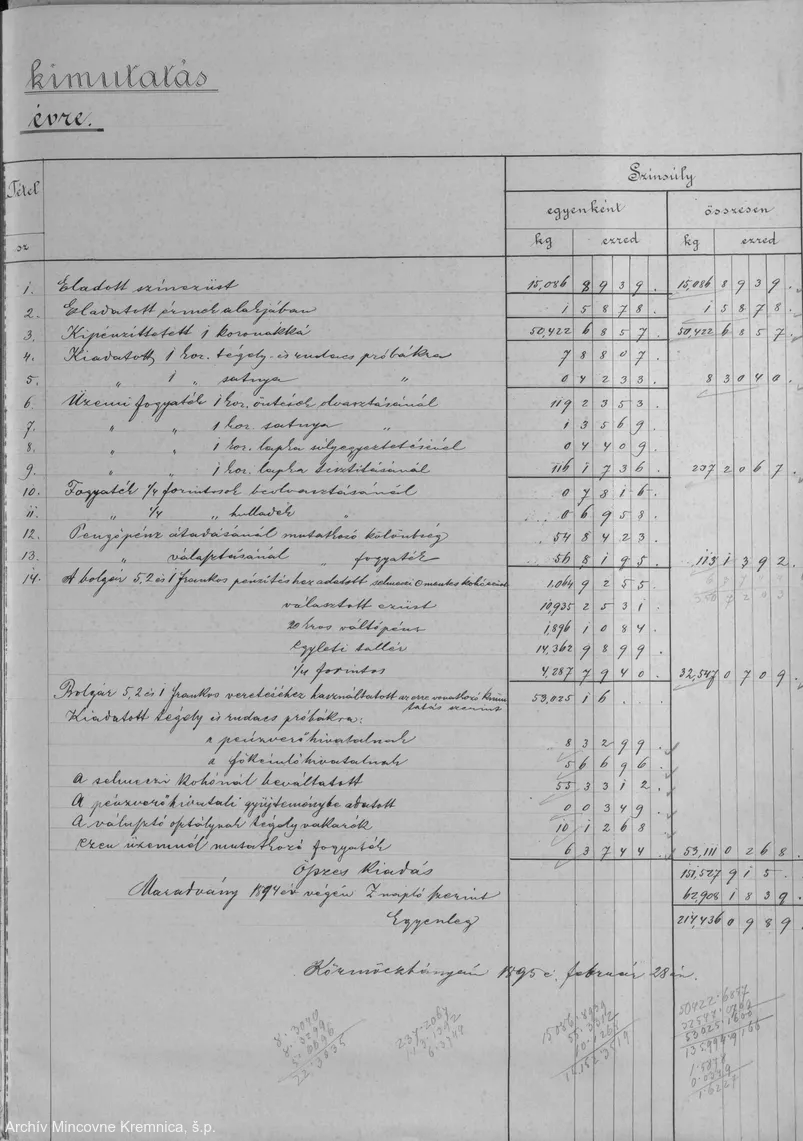 kimutatás
évre.
Tétel sz
Színsúly
egyenként összesen
kg ezred kg ezred
1. Eladott színezüst 15,086 8939. 15,086 8939.
2. Eladatott érmek alakjában 1 5878. 1 5878.
3. Kipénzittetett 1 koronakká 50,422 6857. 50,422 6857.
4. Kiadatott 1 kor. tégely- és rudacs próbákra 7 8807.
5. " 1 " satnya " 0 4233. 8 3040.
6. Üzemi fogyaték 1 kor. öntések olvasztásánál 119 2353.
7. " " 1 kor. satnya " 1 3569.
8. " " 1 kor. lapka súlyegyeztetésénél 0 4409.
9. " " 1 kor. lapka tisztításánál 116 1736. 237 2067.
10. Fogyaték 1/4 forintosok beolvasztásánál 0 7816.
11. " 1/4 " hulladék " 0 6958.
12. Pengőpénz átadásánál mutatkozó különbség 54 8423.
13. " választásánál " fogyaték 56 8195. 113 1392.
14. A bolgár 5, 2 és 1 frankos pénzítéshez adatott selmeczi mentes kohóezüst 1.064 9255.
választott ezüst 10,935 2531.
20 kros váltópénz 1,896 1084.
Egyleti tallér 14,362 9899.
1/4 forintos 4,287 7940. 32,547 0709.
Bolgár 5, 2 és 1 frankos veretéséhez használtatott az erre vonatkozó kimutatás szerint 53,025 16..
Kiadatott tégely és rudacs próbákra:
a pénzverőhivatalnak 8 3299.
a főkémlőhivatalnak 5 6696.
A selmeczi kohónál beváltatott 55 3312.
A pénzverőhivatali gyüjteménybe adatott 0 0349.
A választó osztálynak tégely vakarók 10 1268
ezen üzemnél mutatkozó fogyaték 6 3744. 53,111 0268.
Összes kiadás 151,527 915.
Maradvány 1894 év végén Z napló szerint 62,908 1839.
Egyenleg 214,436 0989.
Körmöczbányán 1895 é. február 28 án.
8.3040
8.3299
5.6696
22.3035
237.2067
113.1392
6.3744
15086.8939
55.3312
10.1268
15152.3519
50422.6857
32547.0709
53025.1600
135994.9166
1.5878
0.0349
1.6227
Archív Mincovne Kremnica, š.p.